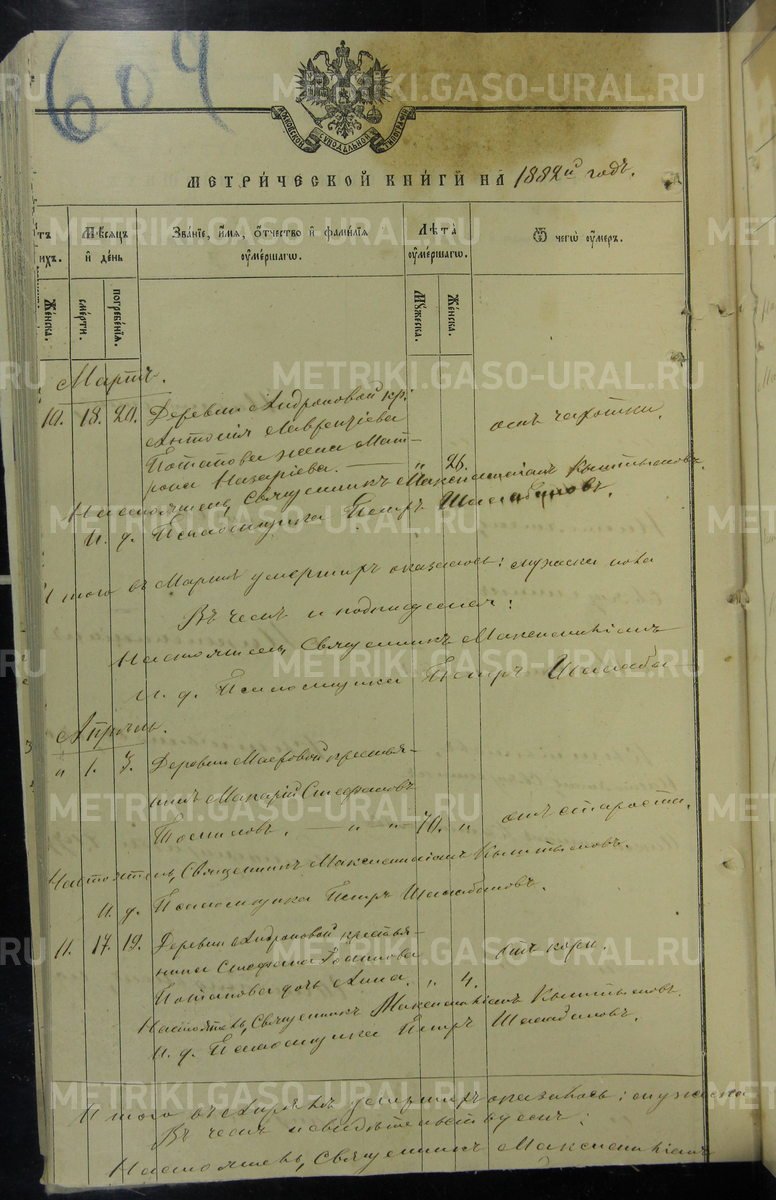 609
МЕТРИ́ЧЕСКОЙ КНИ́ГИ НА 1882й годъ.
Мѣсяцъ и день
Зва́нїе, и҆́мя, ѻ҆́тчество и фами́лїя ᲂу҆ме́ршагѡ.
Лѣ́та ᲂу҆ме́ршагѡ.
Ѿ чегѡ̀ ᲂу҆́меръ.
Же́нска.
сме́рти.
погребе́нїя.
Мꙋ́жеска.
Же́нска.
Мартъ.
10. 18. 20. Деревни Андроновой кр.
Антонія Лаврентіева
Потапова жена Мат-
рона Назаріева. — " 26. отъ чахотки.
Настоятель, Священникъ Максимиліанъ
И. д. Псаломщика Петръ Шалабановъ.
Итого въ Мартѣ умершихъ оказалось: мужеска пола
Въ чемъ и подписуемся:
Настоятель, Священникъ Максимиліанъ
И. д. Псаломщика Петръ Шалаба-
Апрѣль.
" 1. 3. Деревни крестья-
нинъ Макарій Стефановъ
— " — " — 70. " отъ старости.
Настоятель, Священникъ Максимиліанъ
И. д. Псаломщика Петръ Шалабановъ.
11. 17. 19. Деревни Андроновой крестья-
нина Стефана
Потапова дочь Анна. " 4. отъ кори.
Настоятель, Священникъ Максимиліанъ
И. д. Псаломщика Петръ Шалабановъ.
Итого въ Апрѣлѣ умершихъ оказалось: мужеска
Въ чемъ и свидѣтельствуемъ:
Настоятель, Священникъ Максимиліанъ
METRIKI.GASO-URAL.RU